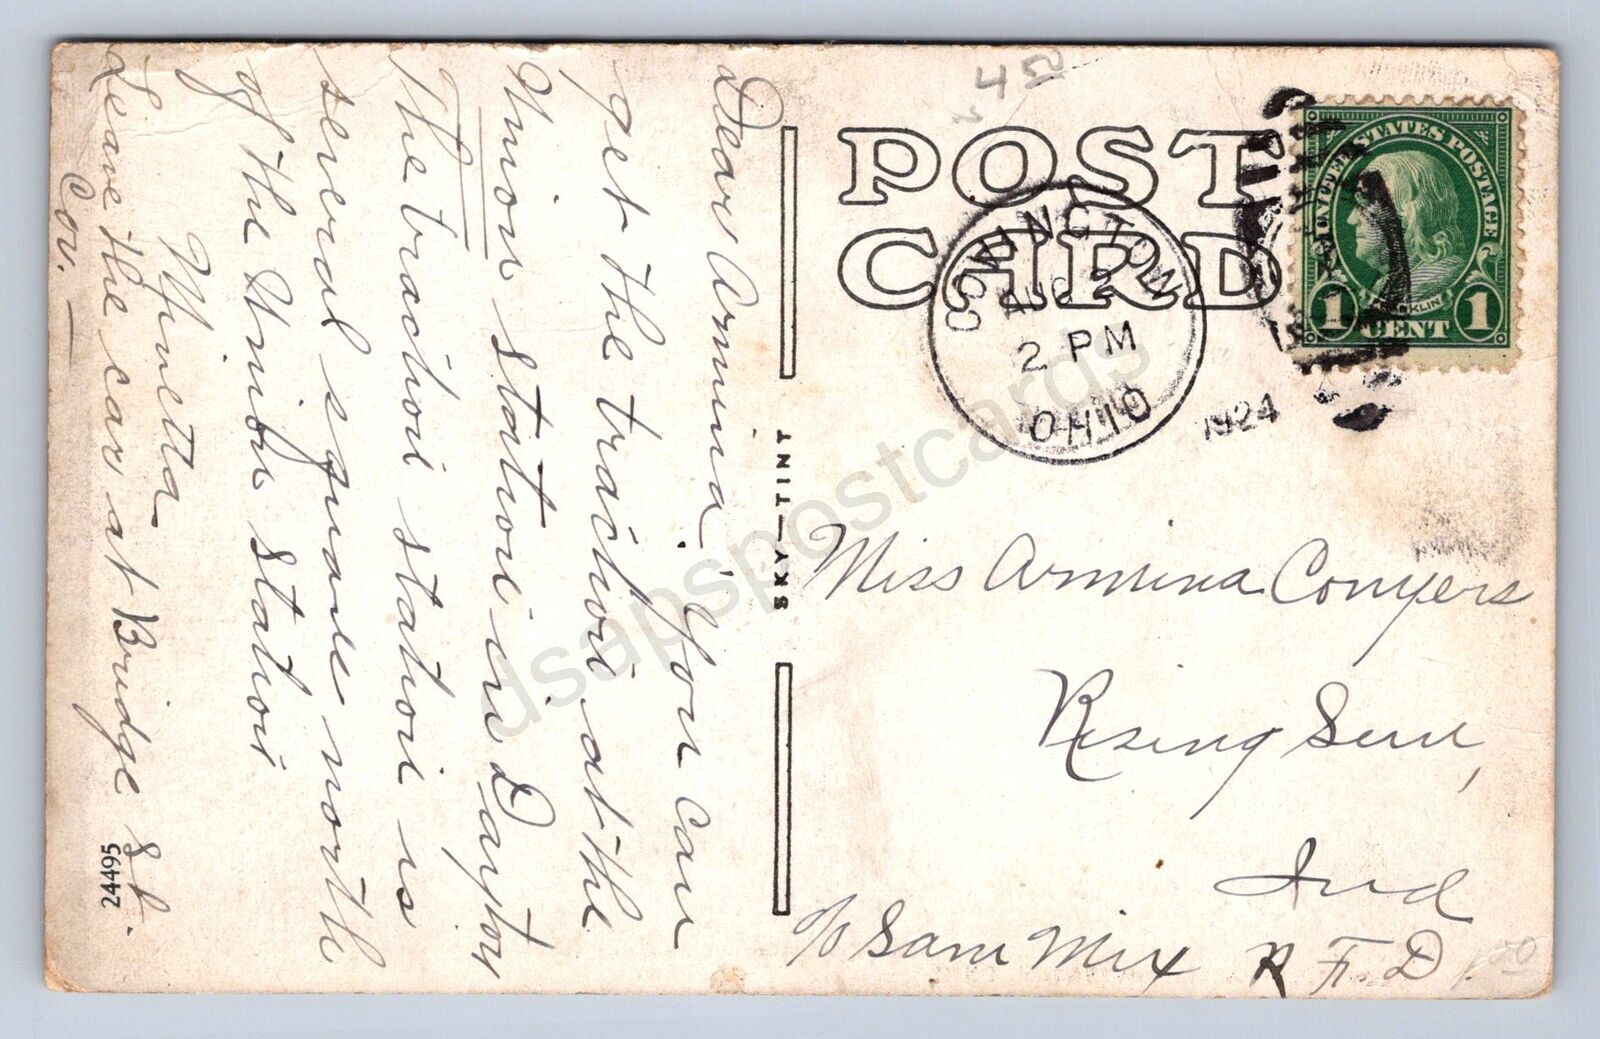 Dear Armina, You can
get the traction at the
Union Station in Dayton
The traction station is
several square north
of the Union Station
Minetta
Leave the car at Bridge St.
Cov. —
24495
SKY-TINT
4 50
POST
CARD
COVINGTON
AUG 2
2 PM
OHIO
1924
UNITED STATES POSTAGE
FRANKLIN
1 CENT 1
Miss Armina Conyers
Rising Sun,
Ind
c/o Sam Mix R.F.D 1
dsapspostcards